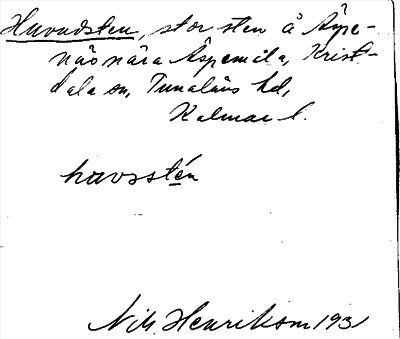 Huvudsten, stor sten å Äspe-
näs nära Äspemåla, Krist-
dala sn, Tunaläns hd,
Kalmar l.
havsstén
Nils Henriksson 1931